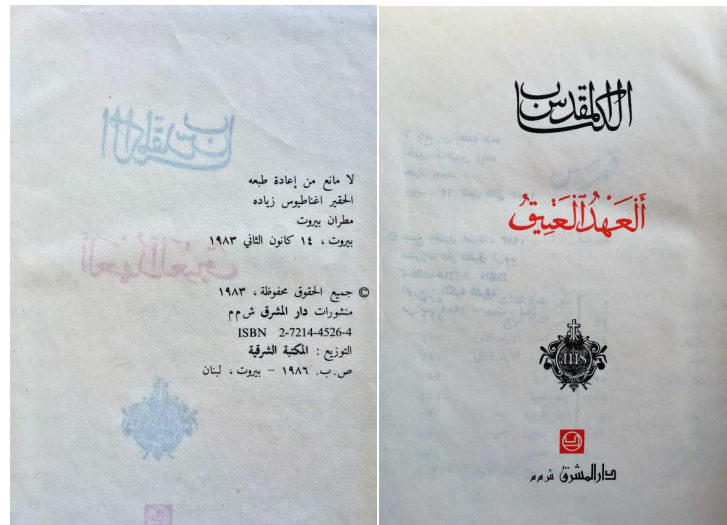 لا مانع من إعادة طبعه
الحقير اغناطيوس زياده
مطران بيروت
بيروت ، ١٤ كانون الثاني ١٩٨٣
© جميع الحقوق محفوظة ، ١٩٨٣
منشورات دار المشرق ش م م
ISBN 2-7214-4526-4
التوزيع : المكتبة الشرقية
ص.ب. ١٩٨٦ – بيروت ، لبنان
الكتاب المقدس
أَلْعَهْدُ ٱلْعَتِيقُ
IHS
دار المشرق ش م م